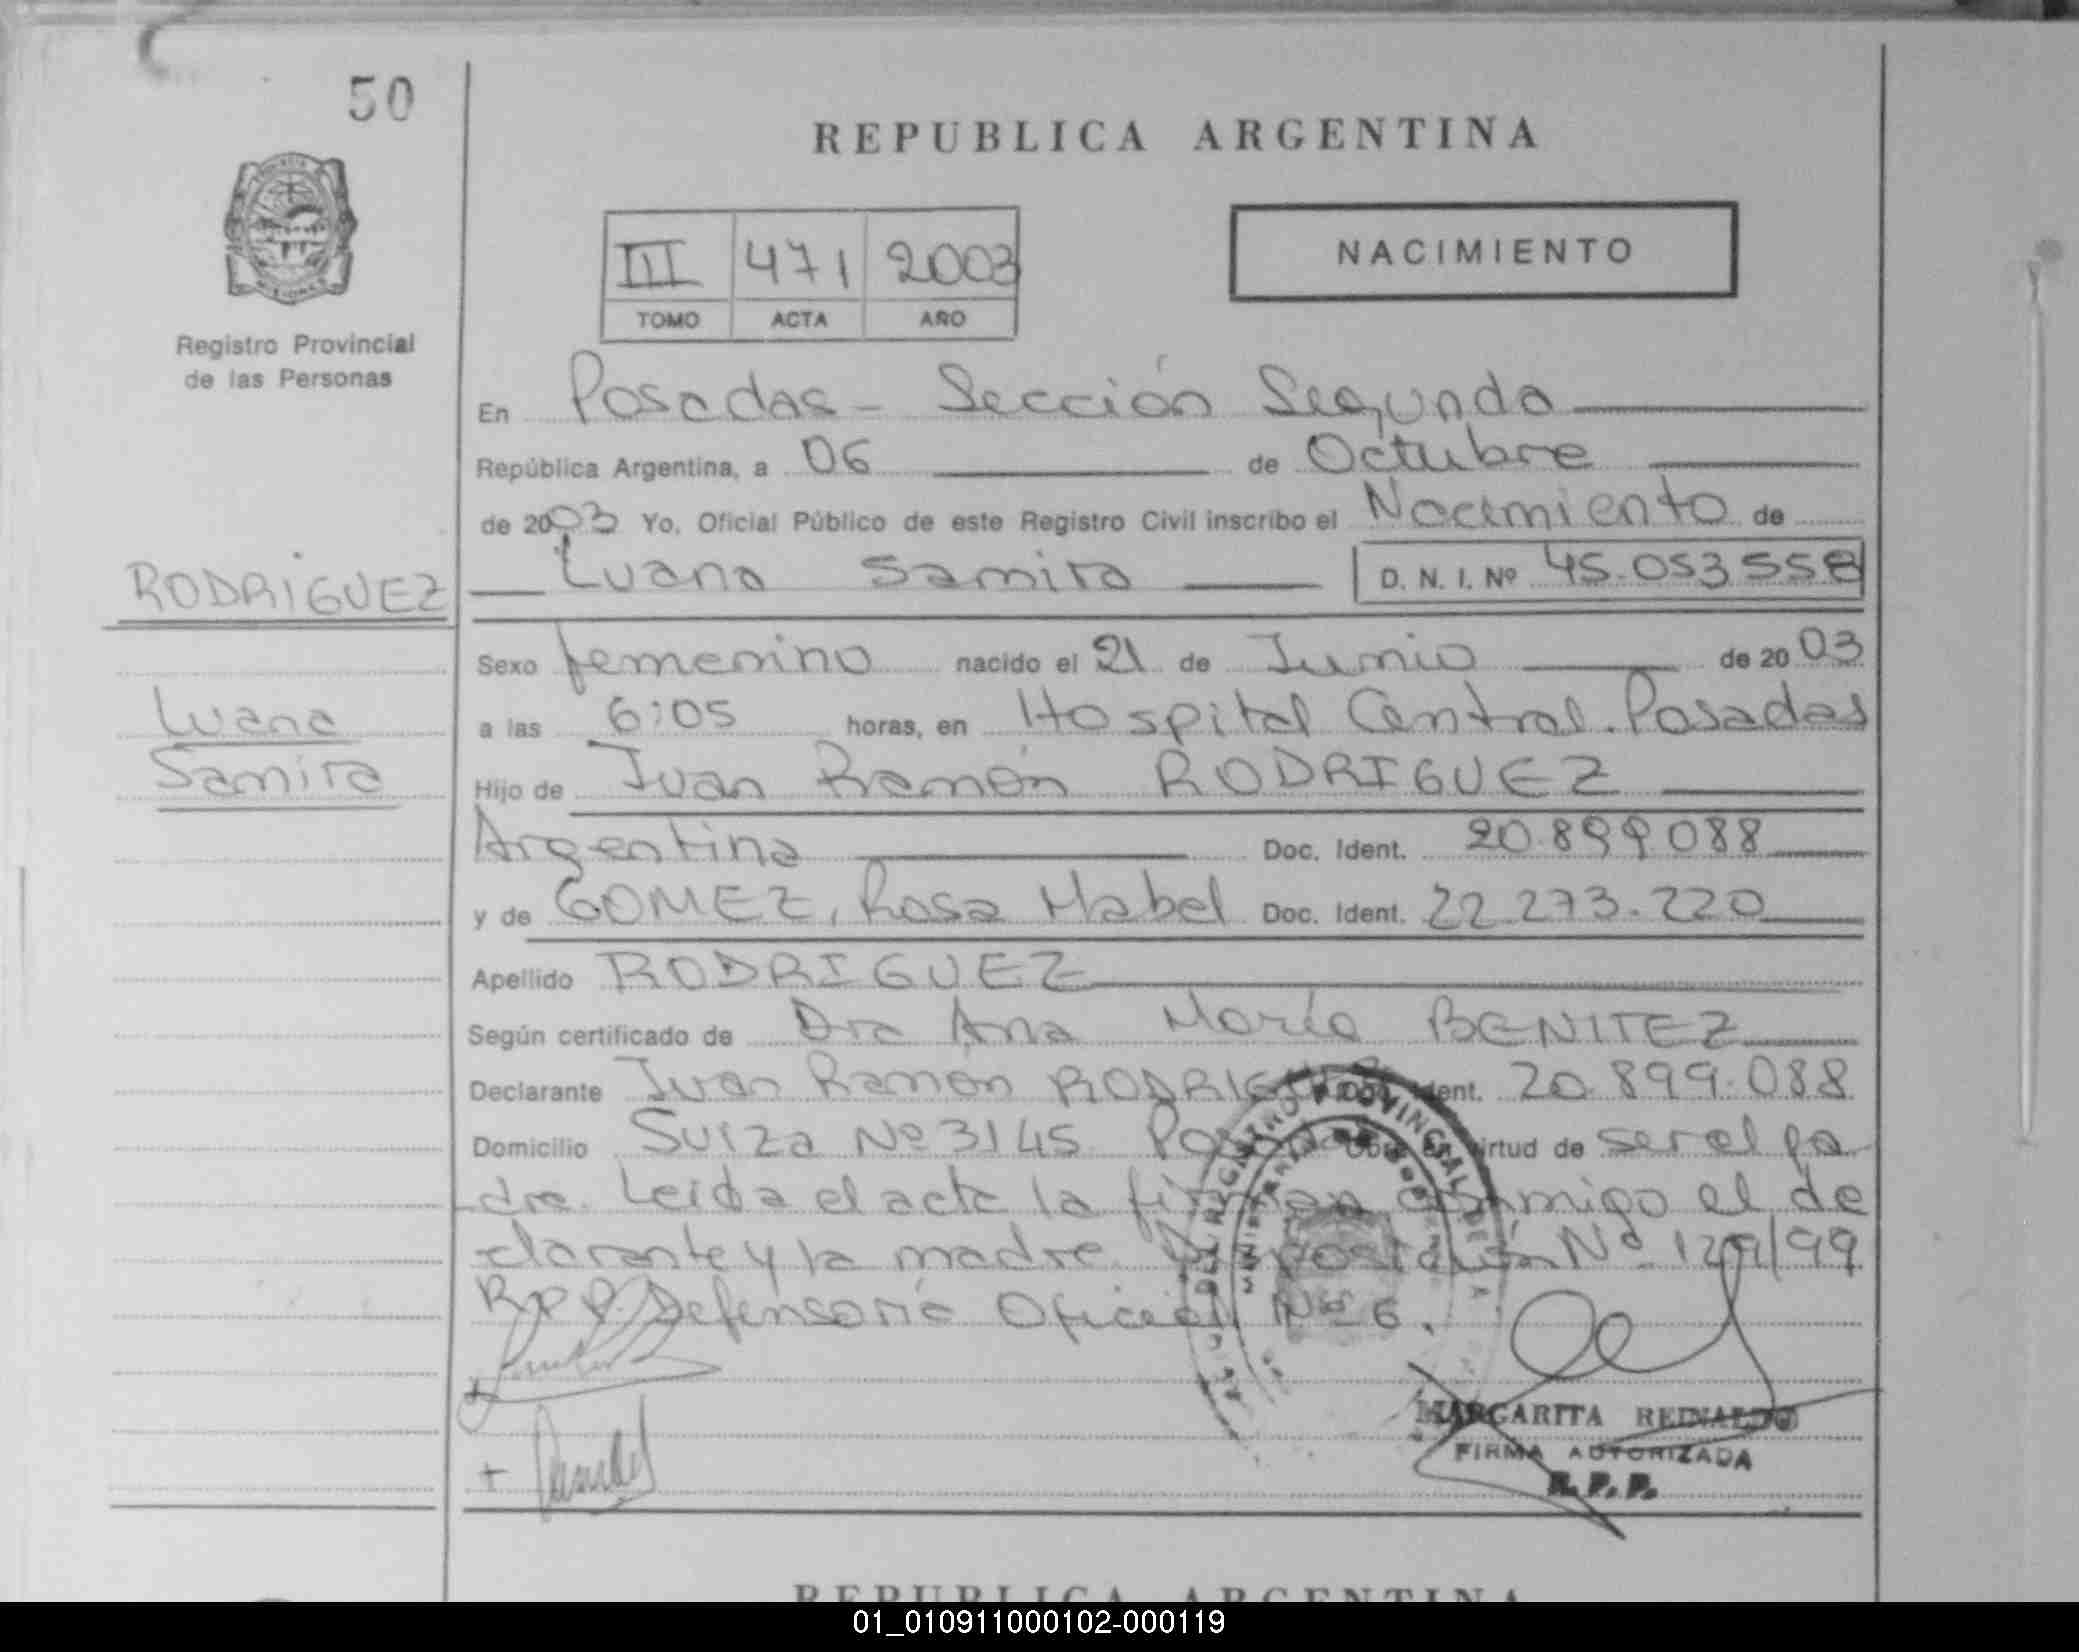 50
REPUBLICA ARGENTINA
III 471 2003
TOMO ACTA AÑO
NACIMIENTO
Registro Provincial
de las Personas
En Posadas - Sección Segunda
República Argentina, a 06 de Octubre
de 2003 Yo, Oficial Público de este Registro Civil inscribo el Nacimiento de
RODRIGUEZ
Luana Samira D. N. I. Nº 45.053.558
Sexo femenino nacido el 21 de Junio de 2003
Luana
a las 6:05 horas, en Hospital Central. Posadas
Samira
Hijo de Juan Ramón RODRIGUEZ
Argentina Doc. Ident. 20.899.088
y de GOMEZ, Rosa Mabel Doc. Ident. 22.273.220
Apellido RODRIGUEZ
Según certificado de Dra Ana María BENITEZ
Declarante Juan Ramón RODRIGUEZ Doc. Ident. 20.899.088
Domicilio Suiza Nº 3145 Posadas Obra en virtud de ser el pa
dre. Leída el acta la firman conmigo el de
clarante y la madre. Disposición Nº 129/99
RPP. Defensoría Oficial Nº 6.
MARGARITA REINALDO
FIRMA AUTORIZADA
R. P. P.
REPUBLICA ARGENTINA
01_010911000102-000119